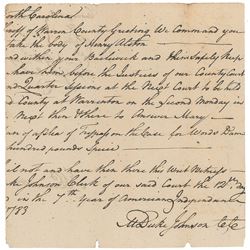 North Carolina
of Warren County Greeting We Command you
take the body of Henry Alston
within your Bailiwick and them Safely Keep
have them before the Justices of our County Court
and Quarter Sessions at the Next Court to be held
County at Warrenton on the Second Monday in
Next then & there to Answer Mary
of a plea of Trespass on the Case for Words
hundred pounds Specie
not and have then there this Writ Witness
Johnson Clerk of our said Court the 12th Day
in the 7th year of American Independence
1783
M Duke Johnson CC